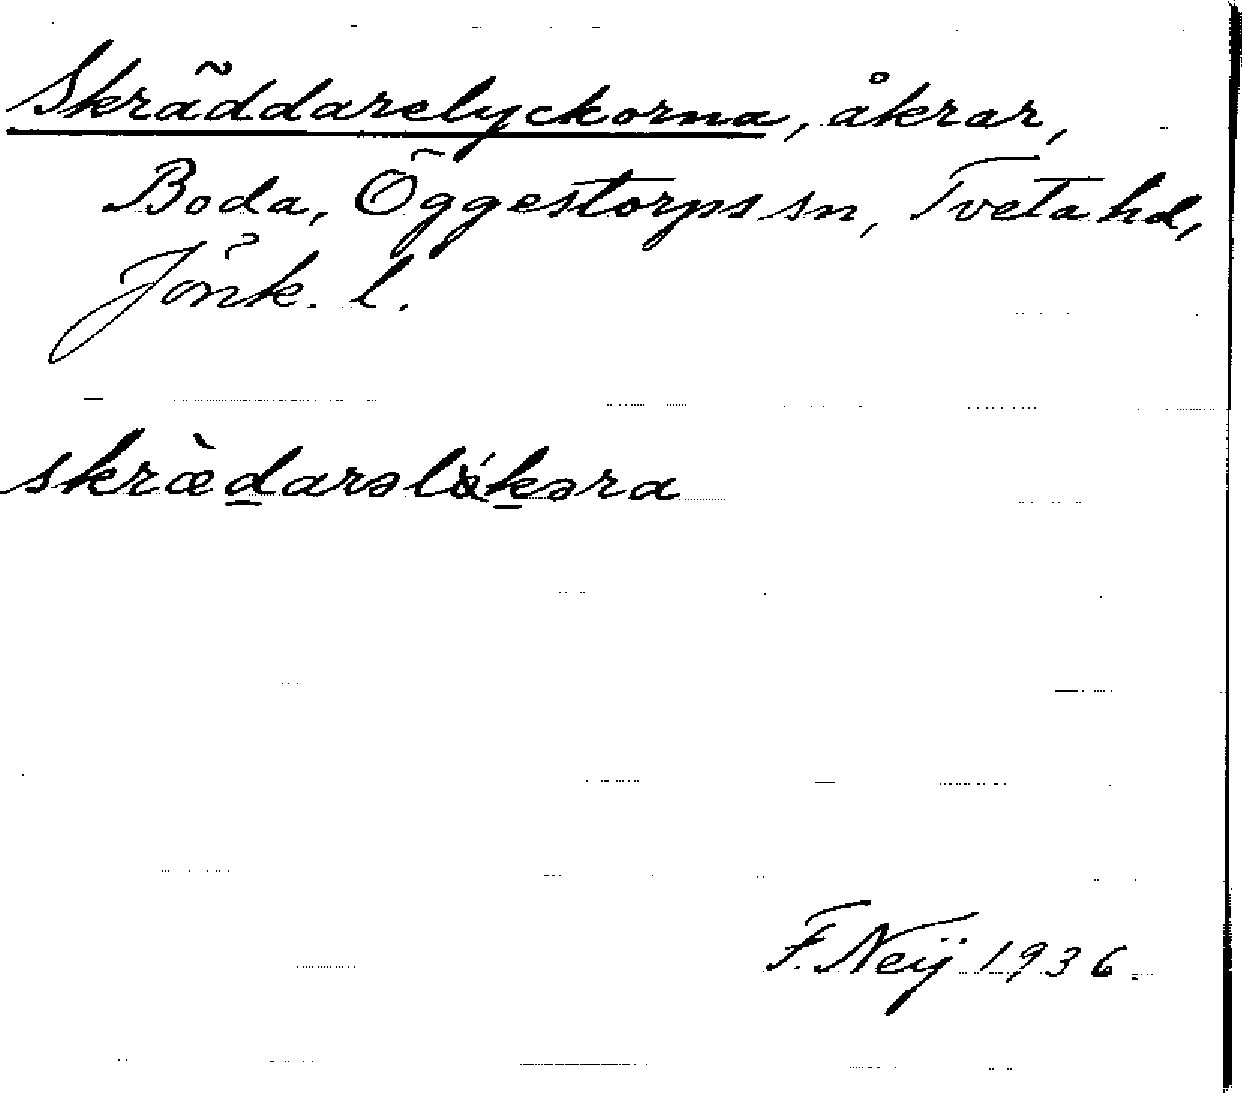 Skräddarelyckorna, åkrar,
Boda, Öggestorps sn, Tveta hd,
Jönk. l.
skræ̀darəlǿkəra
F. Neij 1936.